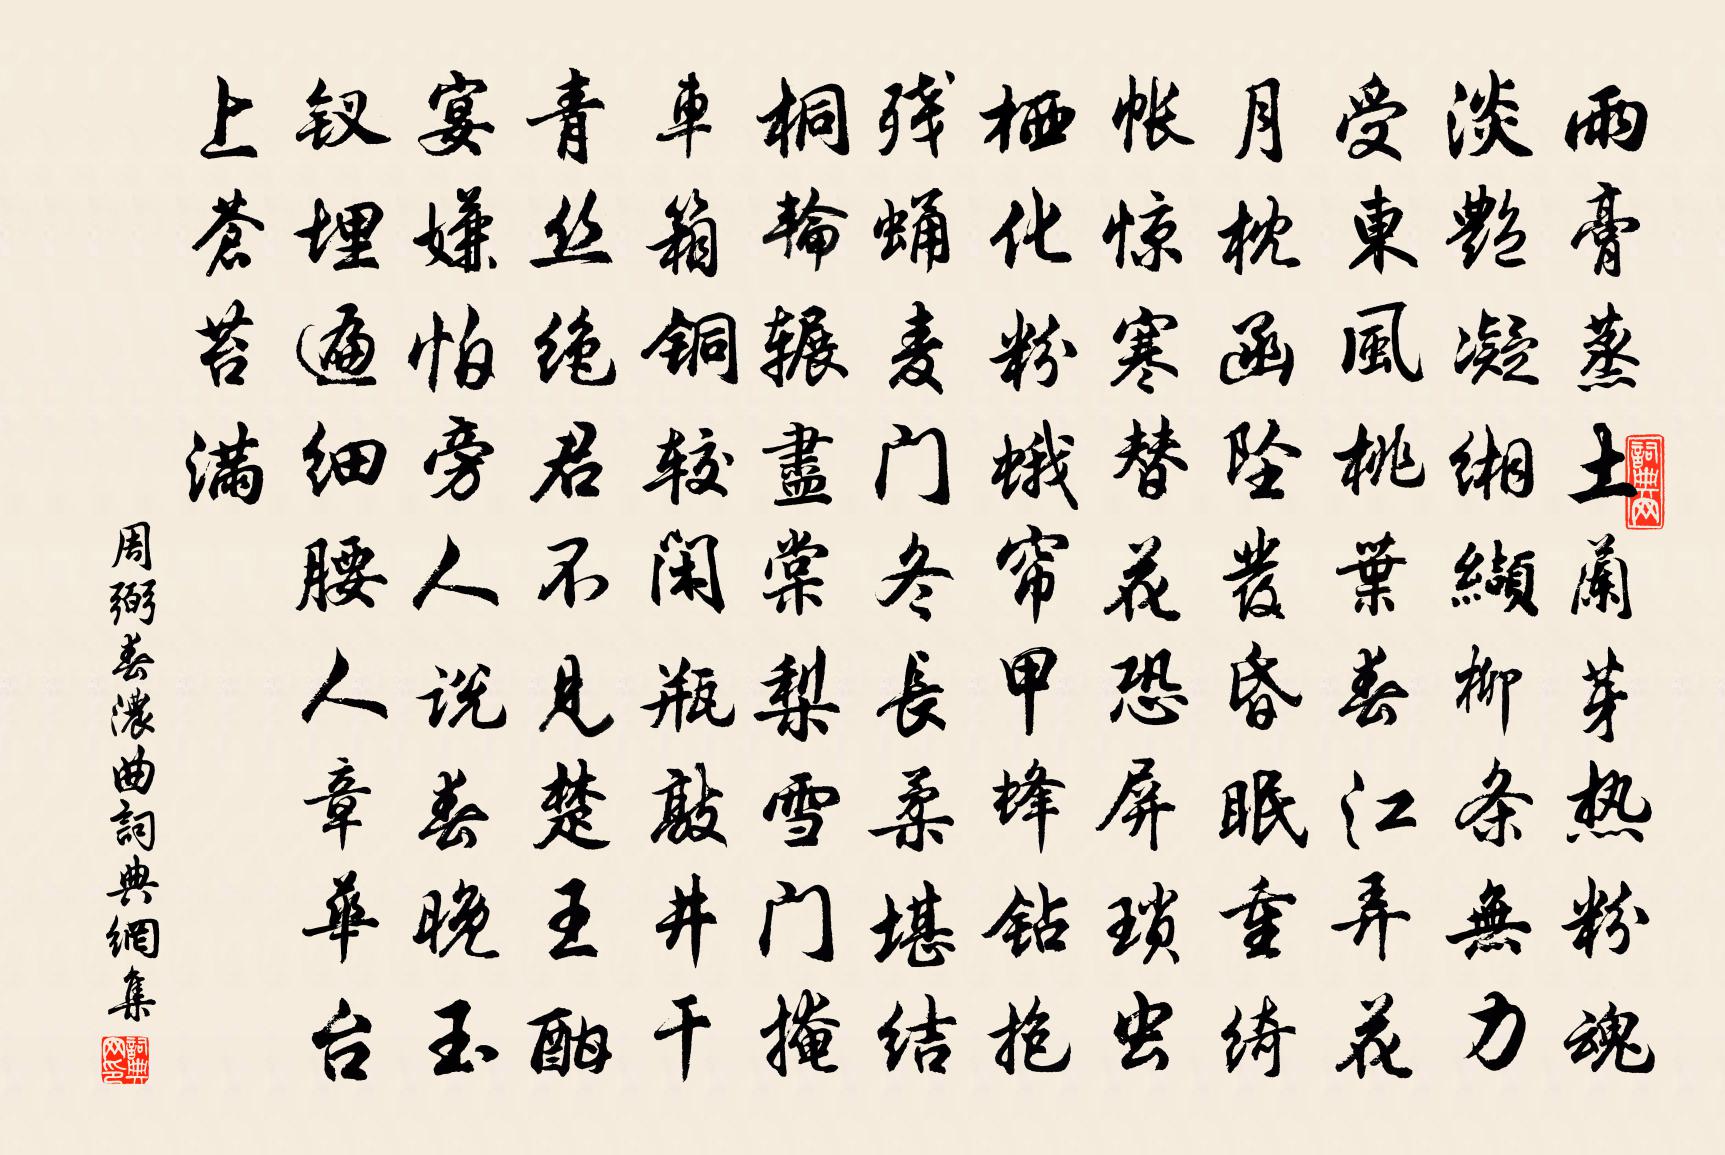 雨膏蒸土蘭芽热粉魂
淡艷凝缃纈柳条無力
受東風桃葉春江弄花
月枕函坠發昏眠重绮
帐惊寒替花恐屏琐虫
栖化粉蛾帘甲蜂钻抱
残蛹麦门冬長柔堪结
桐輪辗盡棠梨雪门掩
車箱铜较闲瓶敲井干
青丝绝君不見楚王酣
宴嫌怕旁人说春晚玉
钗埋遍细腰人章華台
上蒼苔满
周弼春濃曲詞典網集
詞典网
詞典网印